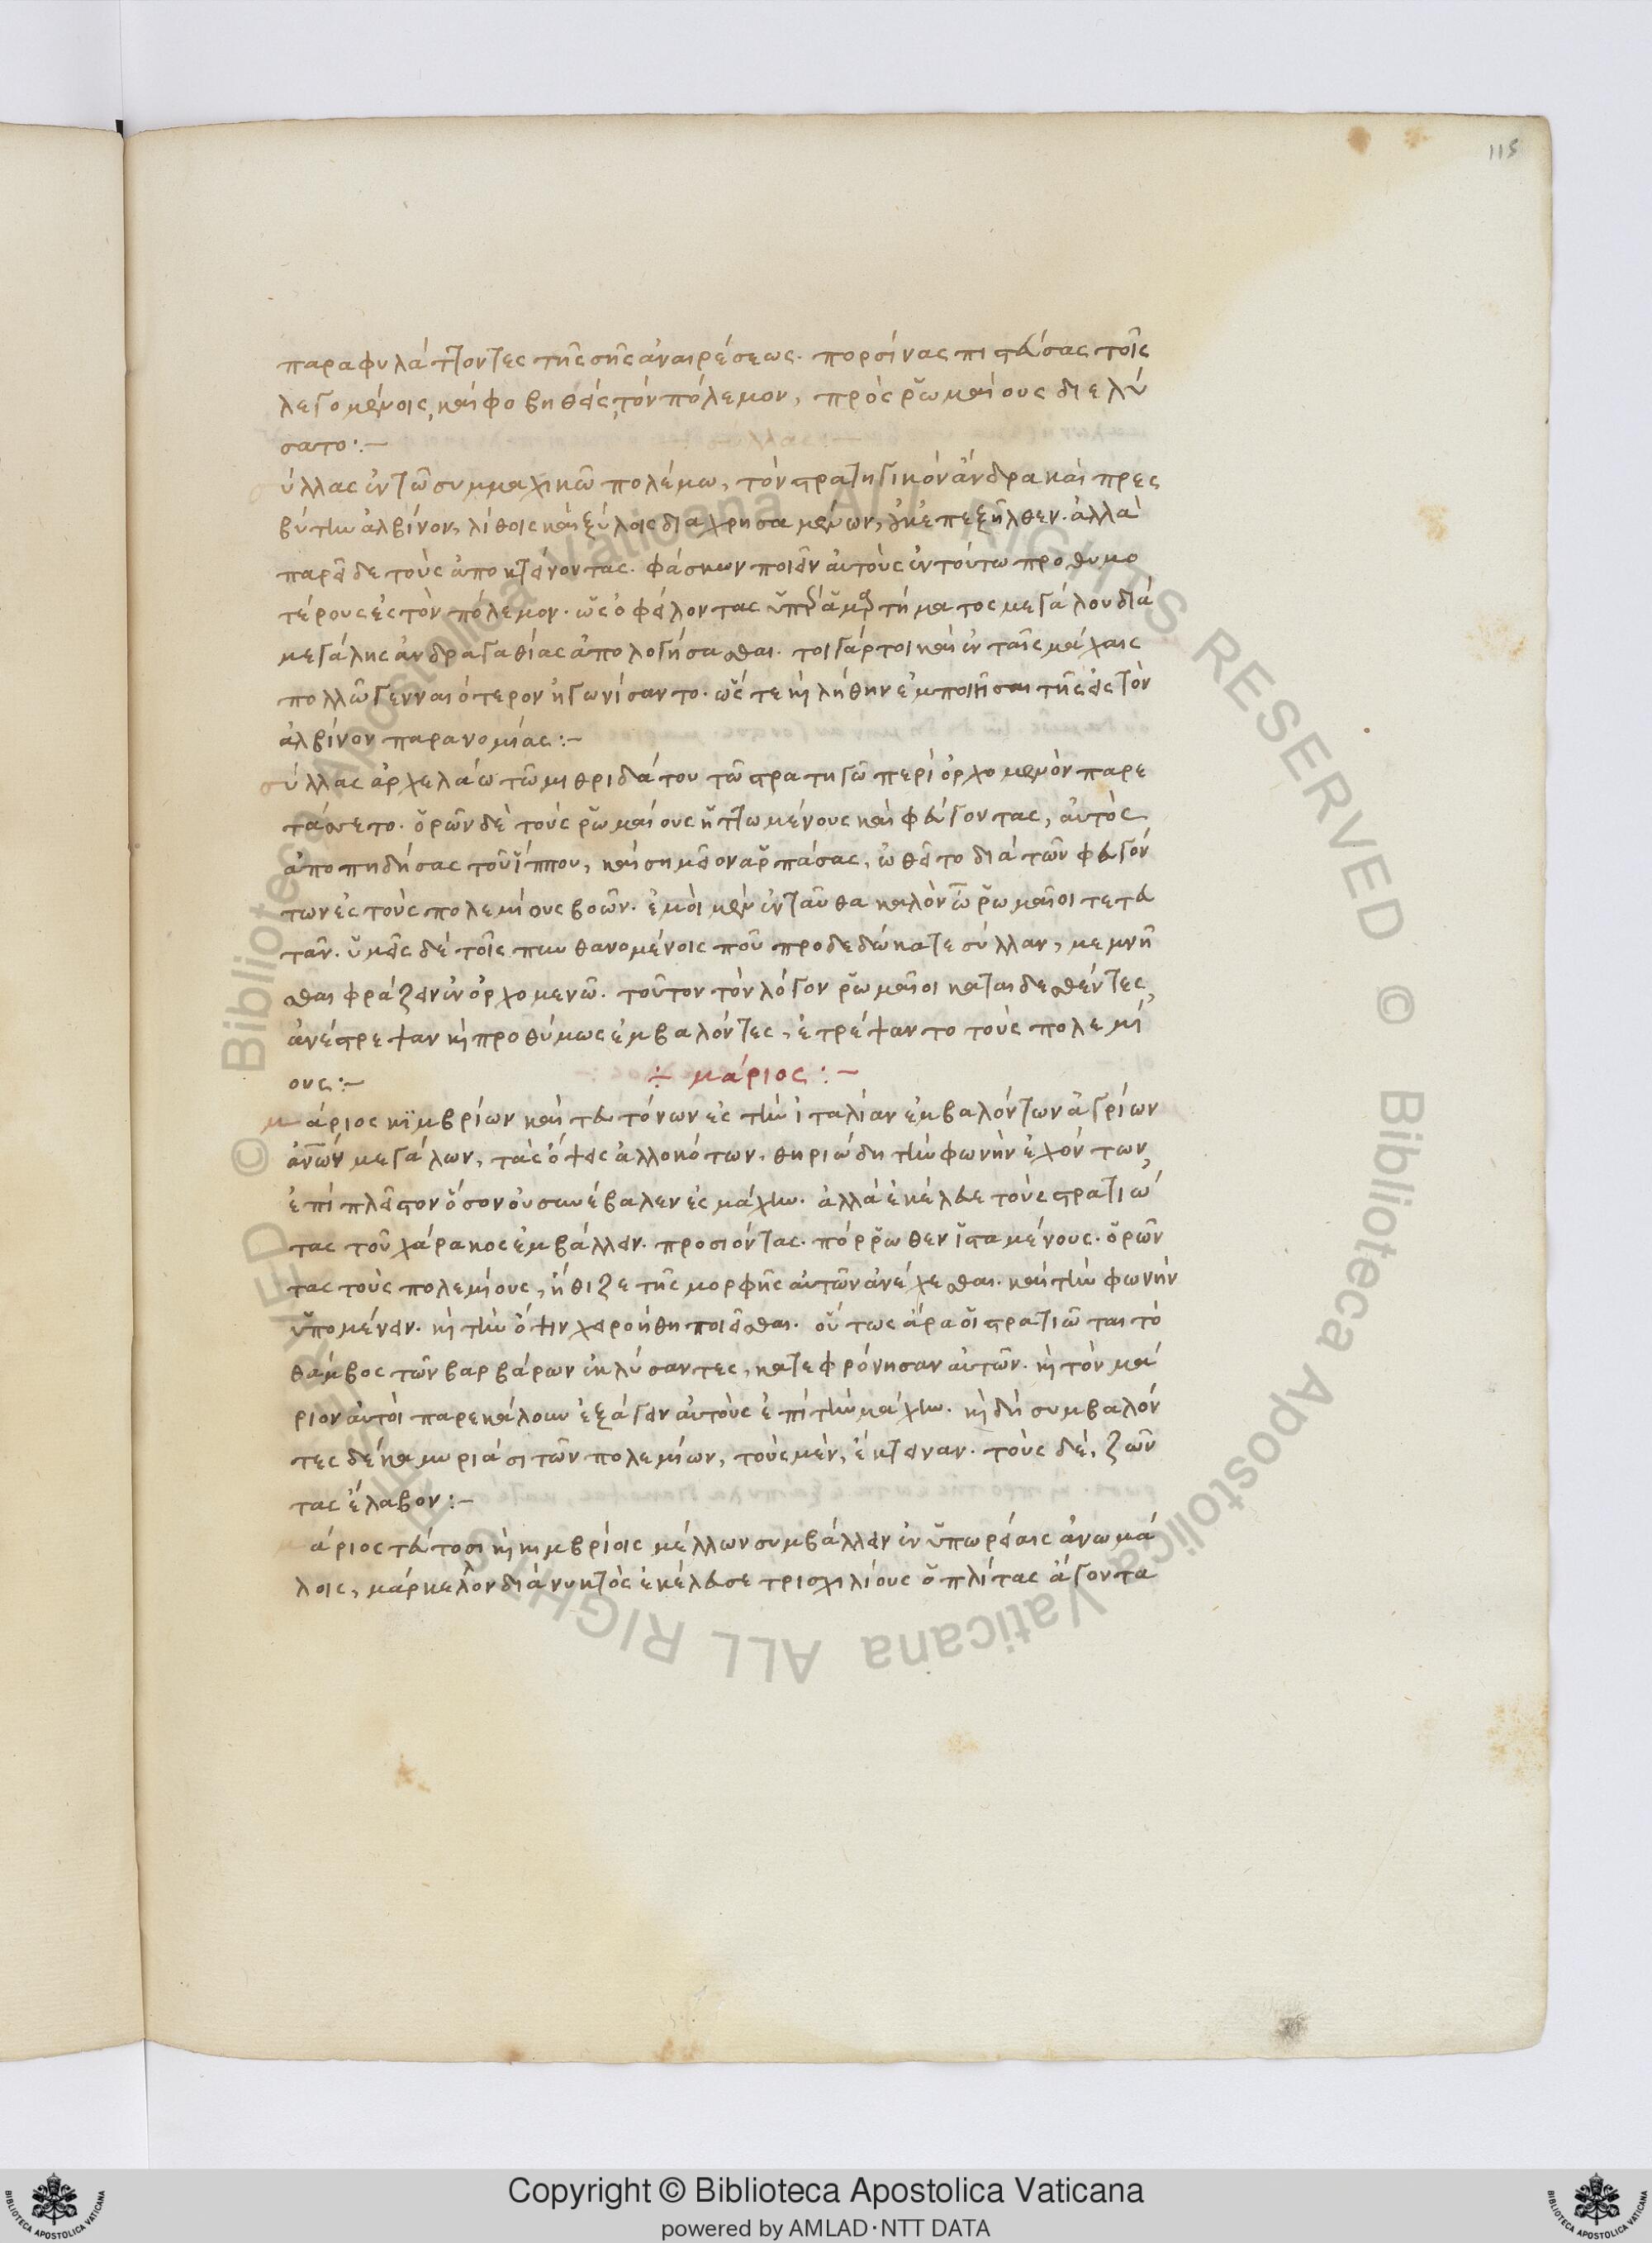 115
παραφυλάττοντες τῆς σῆς ἀναιρέσεως. πορσίνας πιστεύσας τοῖς
λεγομένοις, καὶ φοβηθεὶς, τὸν πόλεμον, πρὸς ῥωμαίους διελύ
σατο:–
σύλλας ἐν τῶ συμμαχικῶ πολέμω, τὸν στρατηγικὸν ἄνδρα καὶ πρεσ
βύτην ἀλβίνον, λίθοις καὶ ξύλοις διαχρησαμένων, οὐκ ἐπεξῆλθεν. ἀλλὰ
παρεῖδε τοὺς ἀποκτείνοντας. φάσκων ποιεῖν αὐτοὺς ἐν τούτω προθυμο
τέρους ἐς τὸν πόλεμον. ὡς ὀφείλοντας ὑπὲρ ἁμαρτήματος μεγάλου διὰ
μεγάλης ἀνδραγαθίας ἀπολογήσασθαι. τοιγάρτοι καὶ ἐν ταῖς μάχαις
πολλῶ γενναιότερον ἠγωνίσαντο. ὥστε κὴ λήθην ἐμποιῆσαι τῆς εἰς τὸν
ἀλβίνον παρανομίας:–
σύλλας ἀρχελάω τῶ μιθριδάτου τῶ στρατηγῶ περὶ ὀρχομενὸν παρε
τάσσετο. ὁρῶν δὲ τοὺς ῥωμαίους ἡττωμένους καὶ φεύγοντας, αὐτὸς
ἀποπηδήσας τοῦ ἵππου, καὶ σημεῖον ἁρπάσας, ὠθεῖτο διὰ τῶν φευγόν
των ἐς τοὺς πολεμίους βοῶν. ἐμοὶ μὲν ἐνταῦθα καλὸν ὦ ῥωμαῖοι τετευ
τᾶν. ὑμεῖς δὲ τοῖς πυνθανομένοις ποῦ προδεδώκατε σύλλαν, μεμνῆ
σθαι φράζειν ἐν ὀρχομενῶ. τοῦτον τὸν λόγον ῥωμαῖοι καταιδεσθέντες,
ἀνέστρεψαν κὴ προθύμως ἐμβαλόντες, ἐτρέψαντο τοὺς πολεμί
ους:–
÷ μάριος:–
μάριος κϊμβρίων καὶ τευτόνων ἐς τὴν ἰταλίαν ἐμβαλόντων ἀγρίων
ἀνῶν μεγάλων, τὰς ὄψεις ἀλλοκότων, θηριώδη τὴν φωνὴν ἐχόντων,
ἐπὶ πλεῖστον ὅσον οὐ συνέβαλεν ἐς μάχην. ἀλλὰ ἐκέλευε τοὺς στρατιώ
τας τοῦ χάρακος ἐμβάλλειν. προσιόντας. πόρρωθεν ἱσταμένους. ὁρῶν
τας τοὺς πολεμίους, ἤθιζε τῆς μορφῆς αὐτῶν ἀνέχεσθαι. καὶ τὴν φωνὴν
ὑπομένειν. κὴ τὴν ὄψιν χειροήθη ποιεῖσθαι. οὕτως ἄρα οἱ στρατιῶται τὸ
θάμβος τῶν βαρβάρων ἐκλύσαντες, κατεφρόνησαν αὐτῶν. κὴ τὸν μά
ριον αὐτοὶ παρεκάλουν ἐξάγειν αὐτοὺς ἐπὶ τὴν μάχην. κὴ δὴ συμβαλόν
τες δέκα μυριάσι τῶν πολεμίων, τοὺς μὲν, ἔκτειναν. τοὺς δὲ, ζῶν
τας ἔλαβον:–
μάριος τεύτοσι κὴ κιμβρίοις μέλλων συμβάλλειν ἐν ὑπωρείαις ἀνωμά
λοις, μάρκελον διὰ νυκτὸς ἐκέλευσε τρισχιλίους ὁπλίτας ἄγοντα
© Biblioteca Apostolica Vaticana ALL RIGHTS RESERVED © Biblioteca Apostolica Vaticana ALL RIGHTS RESERVED
Copyright © Biblioteca Apostolica Vaticana
powered by AMLAD·NTT DATA
BIBLIOTECA APOSTOLICA VATICANA
BIBLIOTECA APOSTOLICA VATICANA